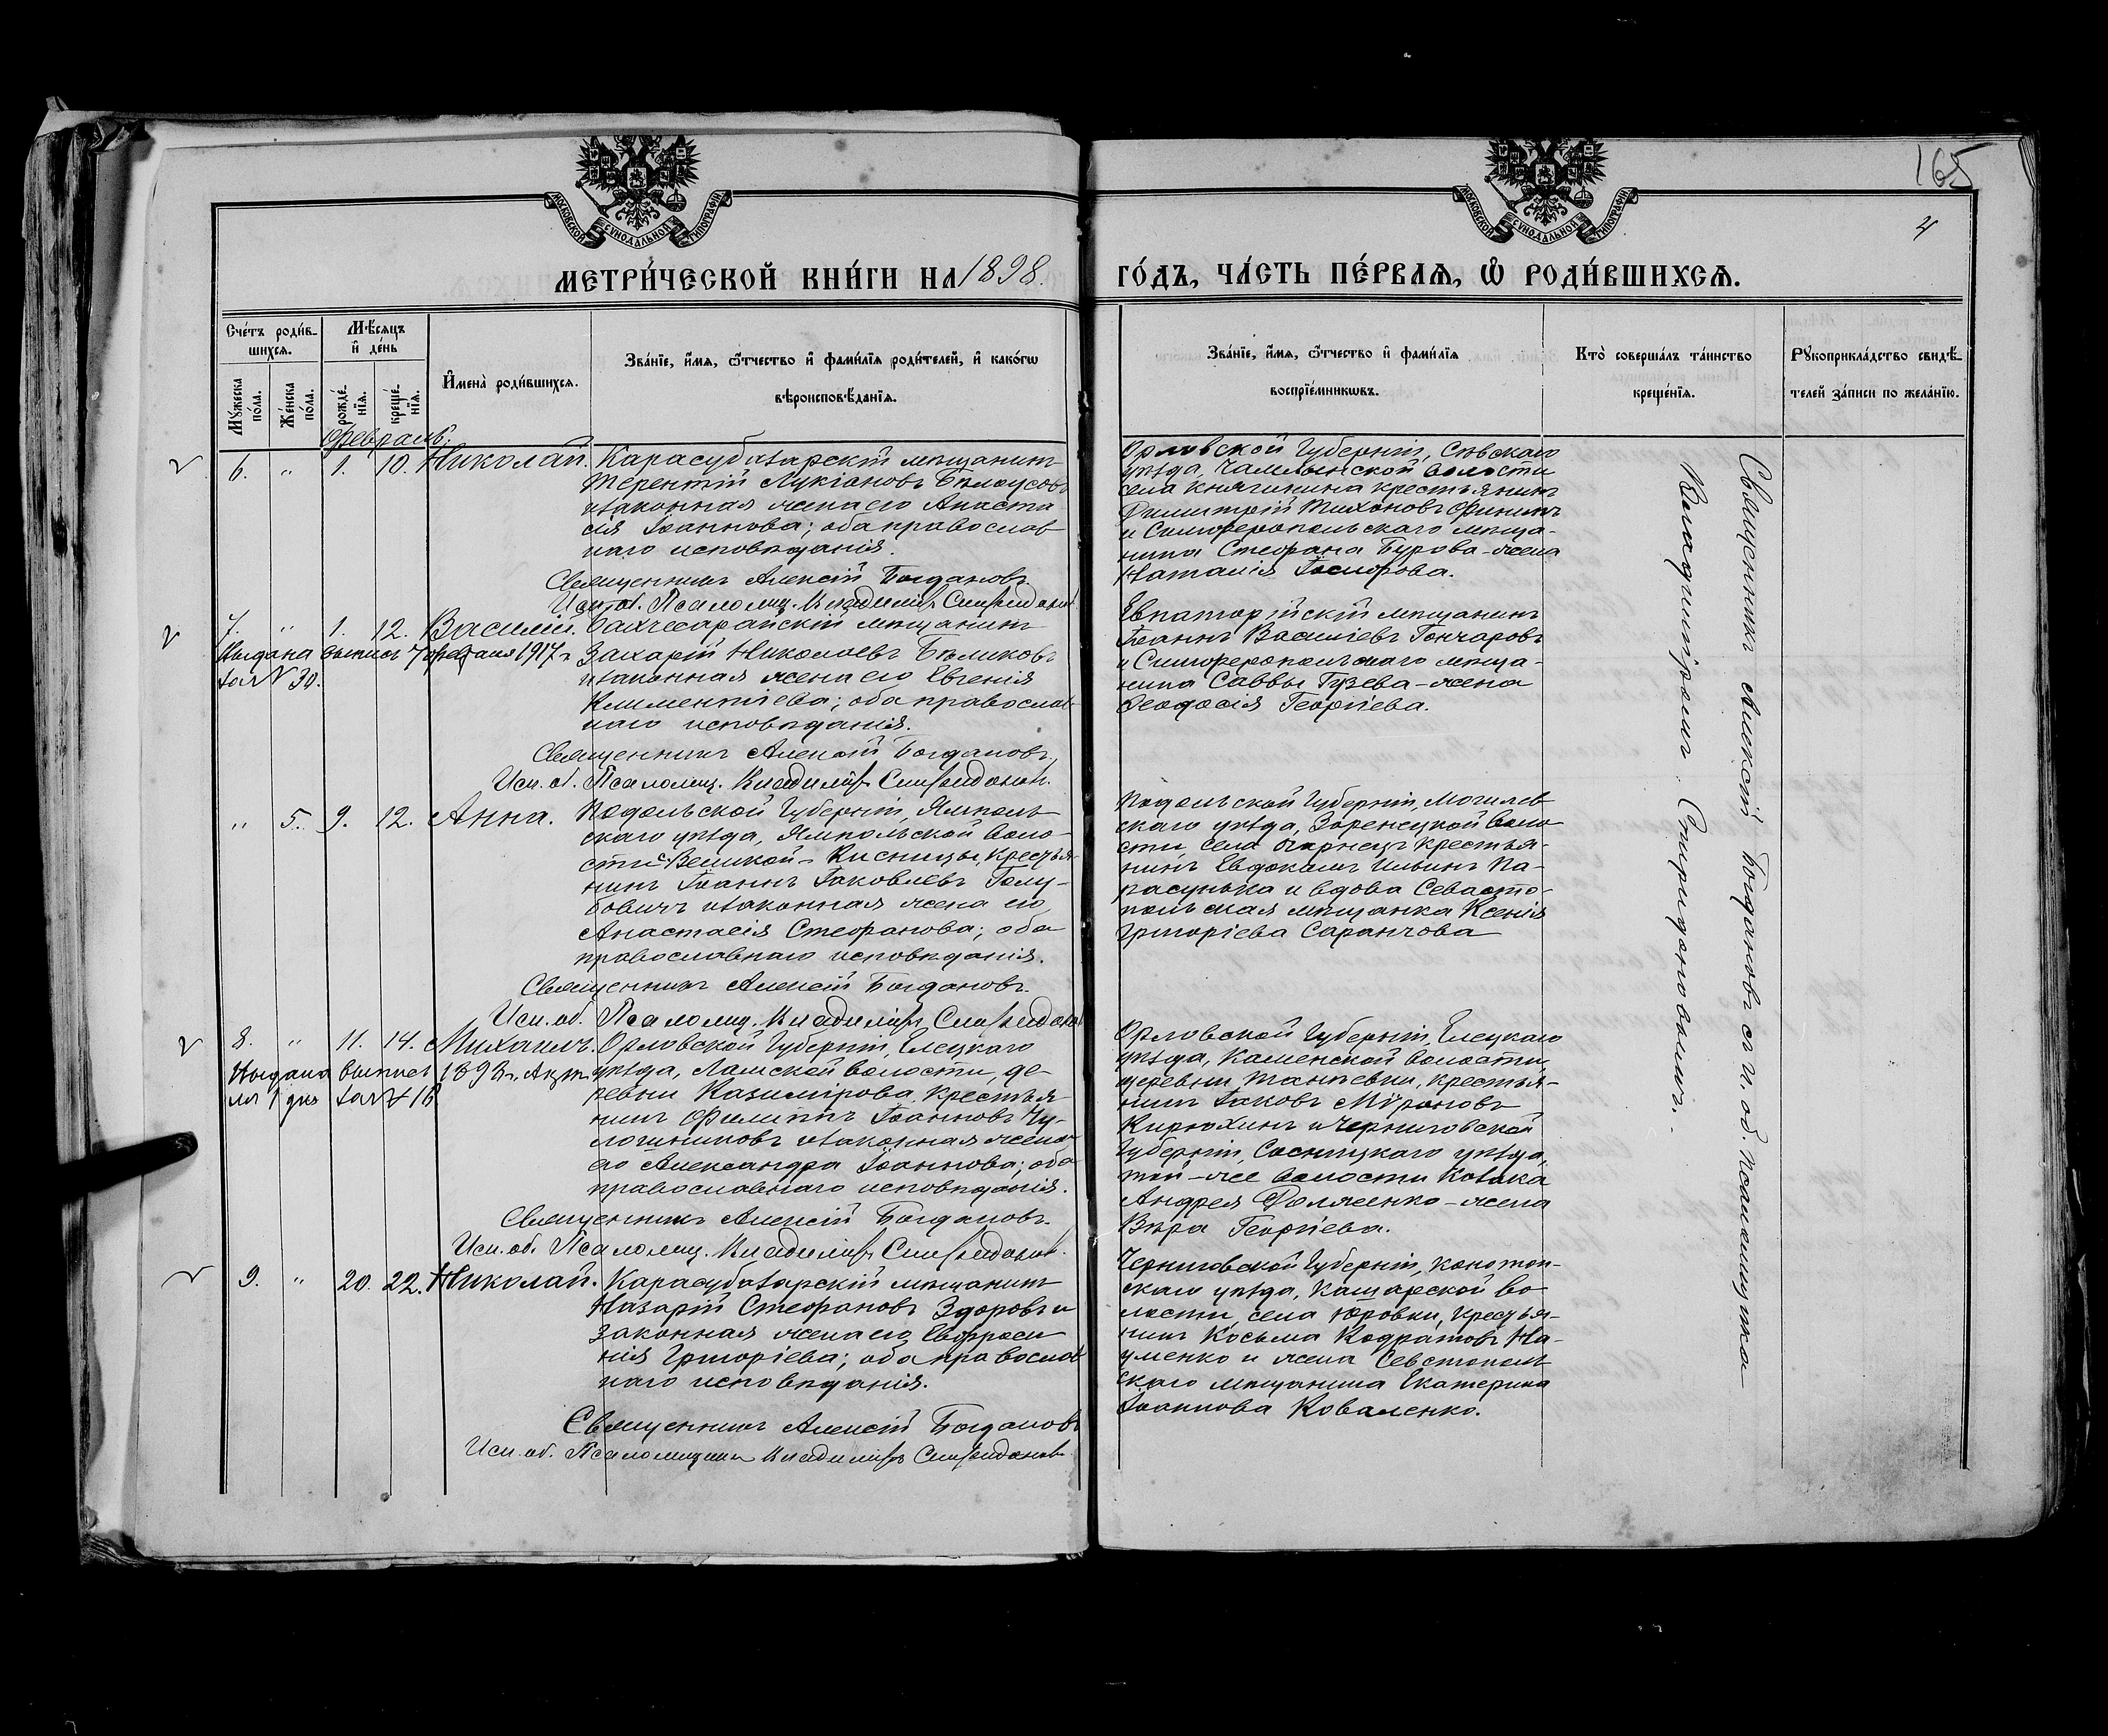 165
4
МОСКОВСКОЙ СѴНОДАЛЬНОЙ ТИПОГРАФІИ
МОСКОВСКОЙ СѴНОДАЛЬНОЙ ТИПОГРАФІИ
МЕТРИ́ЧЕСКОЙ КНИ́ГИ НА 1898.
ГО́ДЪ, ЧА́СТЬ ПЕ́РВАѦ, Ѡ҆ РОДИ́ВШИХСѦ.
Сче́тъ роди́в-
шихсѧ.
Мꙋ́жеска по́ла.
Же́нска по́ла.
Мѣ́сѧцъ
и҆ де́нь
рожде́-
нїѧ.
креще́-
нїѧ.
И҆мена̀ роди́вшихсѧ.
Зва́нїе, и҆́мѧ, ѻ҆́тчество и҆ фами́лїѧ роди́телей, и҆ како́гѡ
вѣроисповѣ́данїѧ.
Зва́нїе, и҆́мѧ, ѻ҆́тчество и҆ фами́лїѧ
воспрїе́мникѡвъ.
Кто̀ соверша́лъ та́инство
креще́нїѧ.
Рꙋкоприкла́дство свидѣ́-
телей за́писи по жела́нїю.
Февраль.
6. " 1. 10. Николай. Карасубазарскій мѣщанинъ
Терентій Лукіановъ Бѣлоусовъ
и законная жена его Анаста
сія Іоаннова; оба православ
наго исповѣданія.
Священникъ Алексій Богдановъ.
Исп. об. Псаломщ. Владиміръ Спиридоновъ.
Орловской Губерніи, Сѣвскаго
уѣзда, Чамлыжской волости
села Княгинина крестьянинъ
Димитрій Тихоновъ Фининъ
и Симферопольскаго мѣща-
нина Стефана Бурова - жена
Наталія Іосифова.
7. " 1. 12. Василій. Бахчесарайскій мѣщанинъ
Выдана выпись 7 февраля 1917 г.
за № 30.
Захарій Николаевъ Бѣликовъ
и законная жена его Евгенія
Климентіева; оба православ-
наго исповѣданія.
Священникъ Алексій Богдановъ.
Исп. об. Псаломщ. Владиміръ Спиридоновъ.
Евпаторійскій мѣщанинъ
Іоаннъ Василіевъ Гончаровъ
и Симферопольскаго мѣща-
нина Саввы Гузева - жена
Ѳеодосія Георгіева.
" 5. 9. 12. Анна. Подольской Губерніи, Ямполь
скаго уѣзда, Ямпольской воло-
сти с. Великой - Кисницы, крестья-
нинъ Іоаннъ Іаковлевъ Голу-
бовичъ и законная жена его
Анастасія Стефанова; оба
православнаго исповѣданія.
Священникъ Алексій Богдановъ.
Исп. об. Псаломщ. Владиміръ Спиридоновъ
Подольской Губерніи, Могилев
скаго уѣзда, воло
сти, села крестья-
нинъ Евдокимъ Ильинъ Па-
расунька и вдова Севасто-
польская мѣщанка Ксенія
Григоріева Саранчова
8. " 11. 14. Михаилъ. Орловской Губерніи, Елецкаго
Выдана выпись 189
за № 16
уѣзда, Ламской волости, де-
ревни Казимірова, крестья
нинъ Филиппъ Іоанновъ Чу-
лошниковъ и законная жена
его Александра Іоаннова; оба
православнаго исповѣданія.
Священникъ Алексій Богдановъ.
Исп. об. Псаломщ. Владиміръ Спиридоновъ.
Орловской Губерніи, Елецкаго
уѣзда, Каменской волости,
деревни крестья-
нинъ Іаковъ Мѵроновъ
Кирюхинъ и Черниговской
Губерніи, Сосницкаго уѣзда,
той-же волости козака
Андрея Долженко - жена
Вѣра Георгіева.
9. " 20. 22. Николай. Карасубазарскій мѣщанинъ
Назарій Стефановъ Здоровъ и
законная жена его Евфроси
нія Григоріева; оба православ
наго исповѣданія.
Священникъ Алексій Богдановъ
Исп. об. Псаломщика Владиміръ Спиридоновъ
Черниговской Губерніи, Конотоп-
скаго уѣзда, во
лости, села Юровки, крестья-
нинъ Косьма Кодратовъ На-
уменко и жена Севстополь
скаго мѣщанина Екатерина
Іоаннова Коваленко.
Священникъ Алексій Богдановъ съ и. об. псаломщика
Владиміромъ Спиридоновымъ.